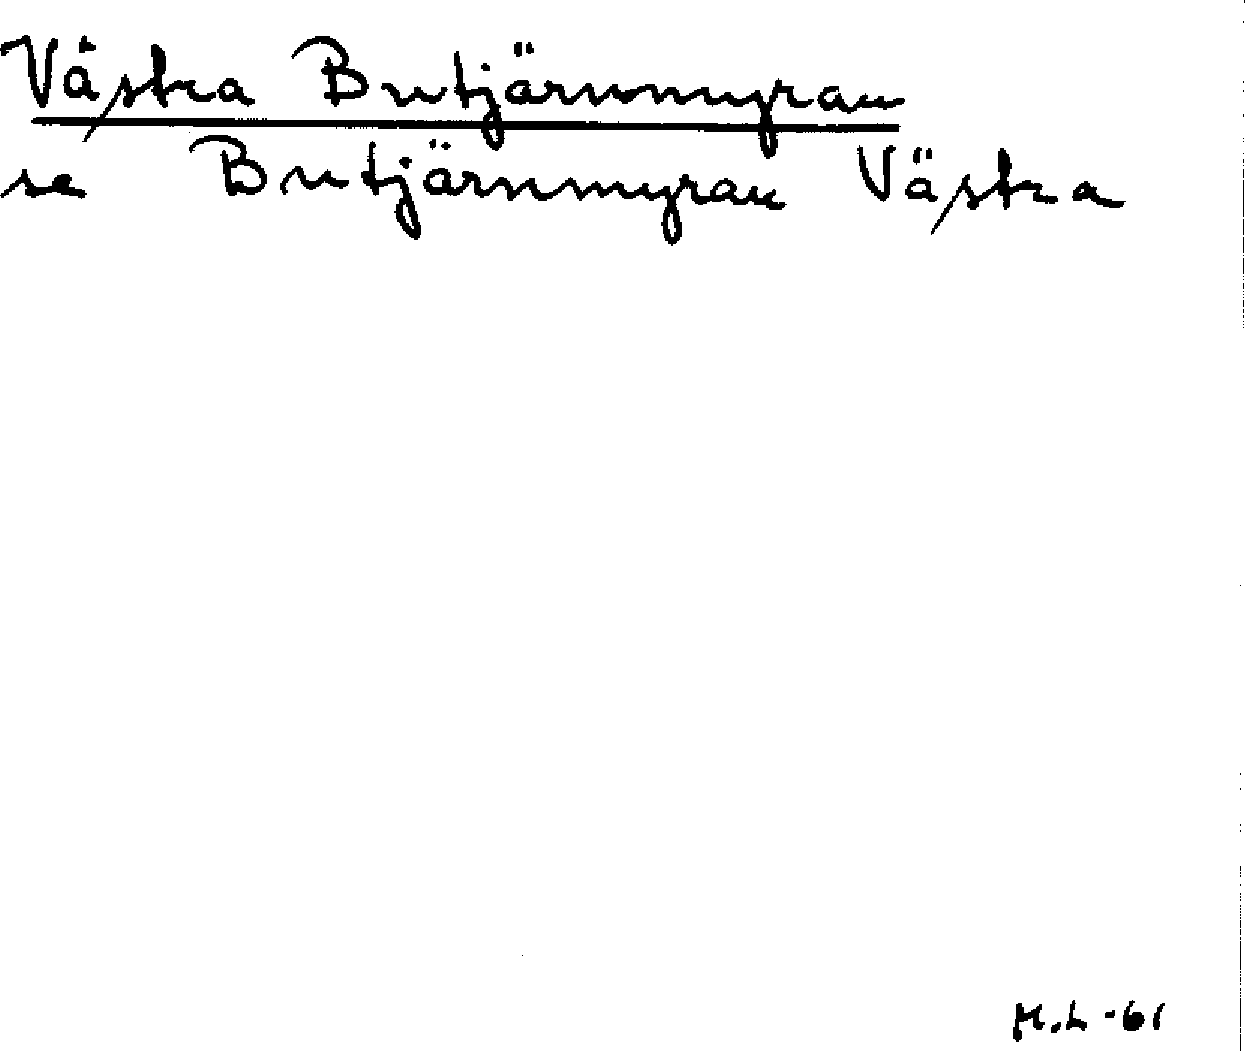 Västra Butjärnmyran
se Butjärnmyran Västra
M.L -61